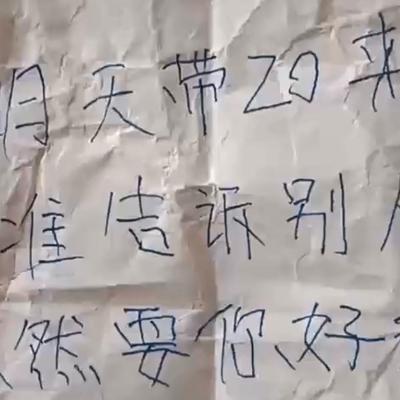 明天带20来
准告诉别
然要你好